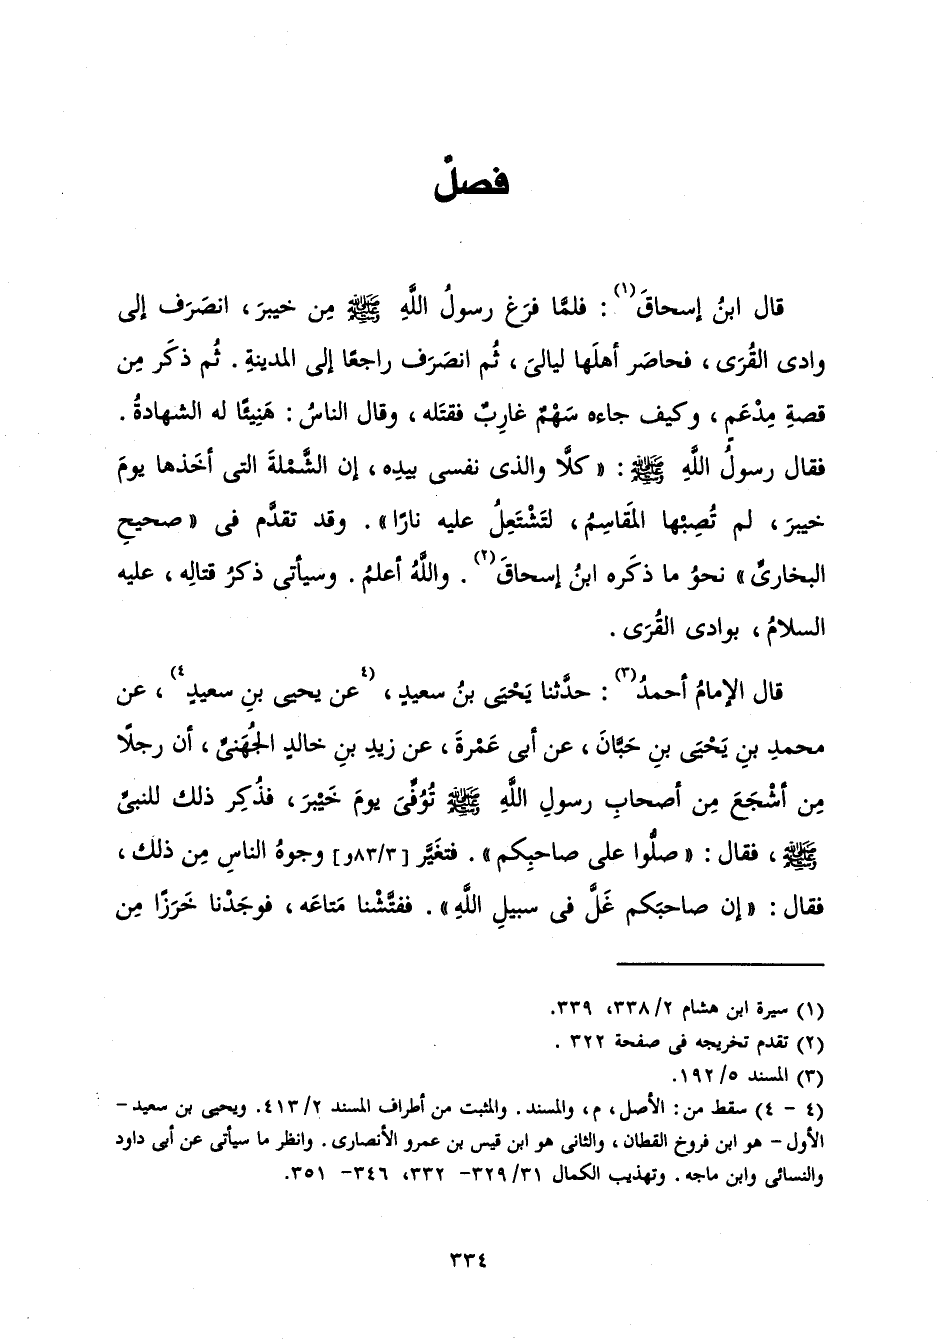 فصلٌ
قال ابنُ إسحاقَ(١) : فلمَّا فرَغ رسولُ اللَّهِ ﷺ مِن خيبرَ ، انصَرَف إلى
وادى القُرَى ، فحاصَر أهلَها ليالىَ ، ثُم انصَرَف راجعًا إلى المدينةِ . ثُم ذكَر مِن
قصةِ مِدْعَمٍ ، وكيف جاءه سَهْمٌ غاربٌ فقتَله ، وقال الناسُ : هَنِيئًا له الشهادةُ .
فقال رسولُ اللَّهِ ﷺ : « كلَّا والذى نفسى بيدِه ، إن الشَّمْلةَ التى أخَذها يومَ
خيبرَ ، لم تُصِبْها المَقَاسِمُ ، لتَشْتَعِلُ عليه نارًا » . وقد تقدَّم فى « صحيحِ
البخارىِّ » نحوُ ما ذكَره ابنُ إسحاقَ(٢) . واللَّهُ أعلمُ . وسيأتى ذكرُ قتالِه ، عليه
السلامُ ، بوادى القُرَى .
قال الإمامُ أحمدُ(٣) : حدَّثنا يَحْيَى بنُ سعيدٍ ، (٤عن يحيى بنِ سعيدٍ٤) ، عن
محمدِ بنِ يَحْيَى بنِ حَبَّانَ ، عن أبى عَمْرةَ ، عن زيدِ بنِ خالدٍ الجُهَنىِّ ، أن رجلًا
مِن أشْجَعَ مِن أصحابِ رسولِ اللَّهِ ﷺ تُوُفِّىَ يومَ خَيْبرَ ، فذُكِر ذلك للنبىِّ
ﷺ ، فقال : « صلُّوا على صاحبِكم » . فتغَيَّر [٨٣/٣و] وجوهُ الناسِ مِن ذلك ،
فقال : « إن صاحبَكم غَلَّ فى سبيلِ اللَّهِ » . ففتَّشْنا مَتاعَه ، فوجَدْنا خَرَزًا مِن
(١) سيرة ابن هشام ٢/ ٣٣٨، ٣٣٩.
(٢) تقدم تخريجه فى صفحة ٣٢٢ .
(٣) المسند ٥/ ١٩٢.
(٤ - ٤) سقط من : الأصل ، م ، والمسند . والمثبت من أطراف المسند ٢/ ٤١٣. ويحيى بن سعيد -
الأول - هو ابن فروخ القطان ، والثانى هو ابن قيس بن عمرو الأنصارى . وانظر ما سيأتى عن أبى داود
والنسائى وابن ماجه . وتهذيب الكمال ٣١/ ٣٢٩- ٣٣٢، ٣٤٦- ٣٥١.
٣٣٤